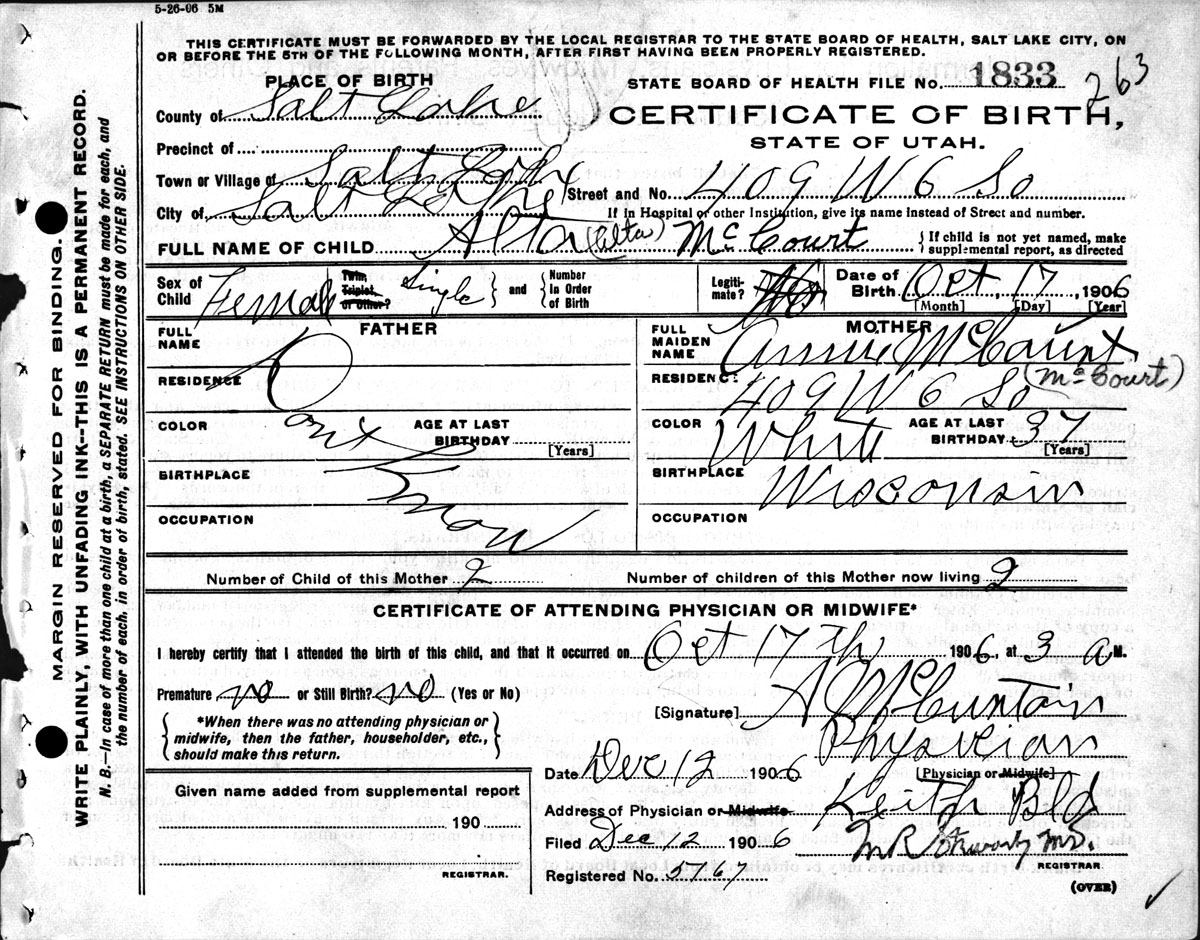 5-26-06 5M
THIS CERTIFICATE MUST BE FORWARDED BY THE LOCAL REGISTRAR TO THE STATE BOARD OF HEALTH, SALT LAKE CITY, ON
OR BEFORE THE 5TH OF THE FOLLOWING MONTH, AFTER FIRST HAVING BEEN PROPERLY REGISTERED.
PLACE OF BIRTH
STATE BOARD OF HEALTH FILE No. 1833 263
County of Salt Lake
CERTIFICATE OF BIRTH,
STATE OF UTAH.
Precinct of
Town or Village of Salt Lake
Street and No. 409 W 6 So
City of Salt Lake
If in Hospital or other Institution, give its name instead of Street and number.
FULL NAME OF CHILD Alta (Alta) McCourt { If child is not yet named, make
supplemental report, as directed
Sex of Child Female
Twin, Triplet, or Other? Single } and { Number In Order of Birth
Legiti-mate?
Date of Birth Oct, 17, 1906
[Month] [Day] [Year]
FATHER
FULL NAME
RESIDENCE
COLOR
AGE AT LAST BIRTHDAY
[Years]
BIRTHPLACE
OCCUPATION
Dont Know
MOTHER
FULL MAIDEN NAME Annie McCourt
(McCourt)
RESIDENCE 409 W 6 So
COLOR White
AGE AT LAST BIRTHDAY 37
[Years]
BIRTHPLACE Wisconsin
OCCUPATION
Number of Child of this Mother 2
Number of children of this Mother now living 2
CERTIFICATE OF ATTENDING PHYSICIAN OR MIDWIFE*
I hereby certify that I attended the birth of this child, and that it occurred on Oct 17th 1906, at 3 a M.
Premature no or Still Birth? no (Yes or No)
[Signature]
{ *When there was no attending physician or
midwife, then the father, householder, etc.,
should make this return. }
Physician
[Physician or Midwife]
Date Dec 12 1906
Address of Physician or Midwife Keith Bld
Filed Dec 12 1906
M.D.
REGISTRAR.
Registered No. 5767
(OVER)
Given name added from supplemental report
190
REGISTRAR.
MARGIN RESERVED FOR BINDING.
WRITE PLAINLY, WITH UNFADING INK--THIS IS A PERMANENT RECORD.
N. B.—In case of more than one child at a birth, a SEPARATE RETURN must be made for each, and
the number of each, in order of birth, stated. SEE INSTRUCTIONS ON OTHER SIDE.